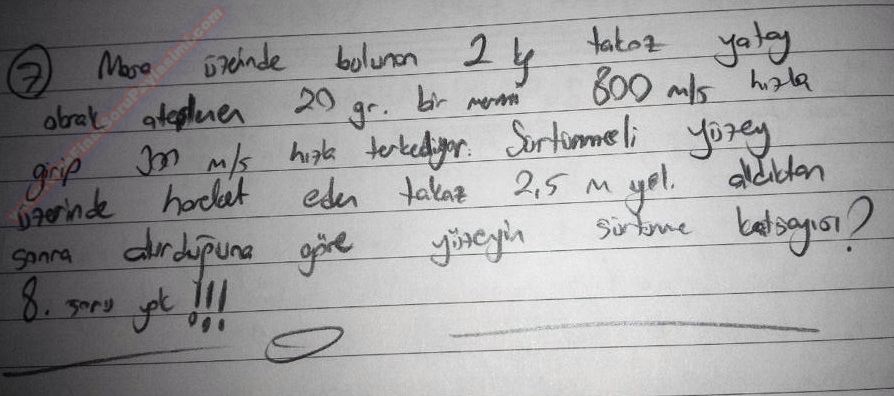 7 Masa üzerinde bulunan 2 kg takoz yatay
olarak ateşlenen 20 gr. bir mermi 800 m/s hızla
girip 300 m/s hızla terkediyor. Sürtünmeli yüzey
üzerinde hareket eden takoz 2,5 m yol. aldıktan
sonra durduğuna göre yüzeyin sürtünme katsayısı?
8. soru yok !!!